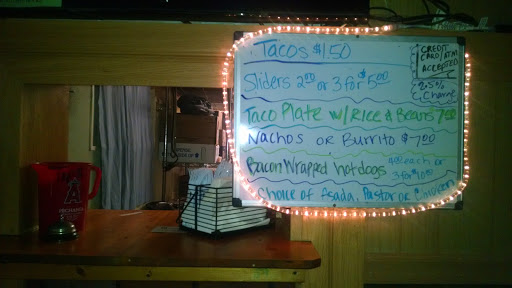 Tacos $1.50
CREDIT
CARD/ATM
ACCEPTED
Sliders 2.00 or 3 for $5.00
2.5%
C. Charge
Taco Plate w/Rice & Beans 7.00
Nachos or Burrito $7.00
Bacon Wrapped hotdogs 4.00 each or
3 for $10.00
Choice of Asada, Pastor or Chicken